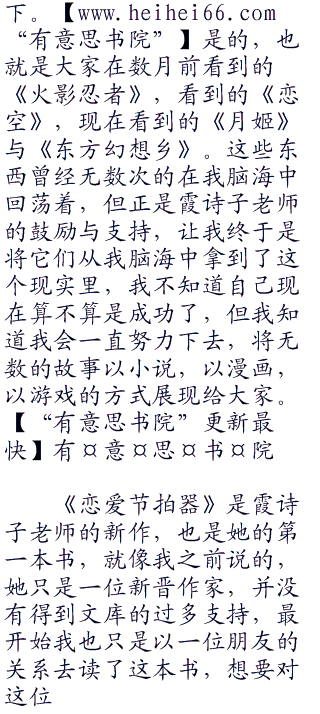 下。【www.heihei66.com
“有意思书院”】是的，也
就是大家在数月前看到的
《火影忍者》，看到的《恋
空》，现在看到的《月姬》
与《东方幻想乡》。这些东
西曾经无数次的在我脑海中
回荡着，但正是霞诗子老师
的鼓励与支持，让我终于是
将它们从我脑海中拿到了这
个现实里，我不知道自己现
在算不算是成功了，但我知
道我会一直努力下去，将无
数的故事以小说，以漫画，
以游戏的方式展现给大家。
【“有意思书院”更新最
快】有¤意¤思¤书¤院
《恋爱节拍器》是霞诗
子老师的新作，也是她的第
一本书，就像我之前说的，
她只是一位新晋作家，并没
有得到文库的过多支持，最
开始我也只是以一位朋友的
关系去读了这本书，想要对
这位